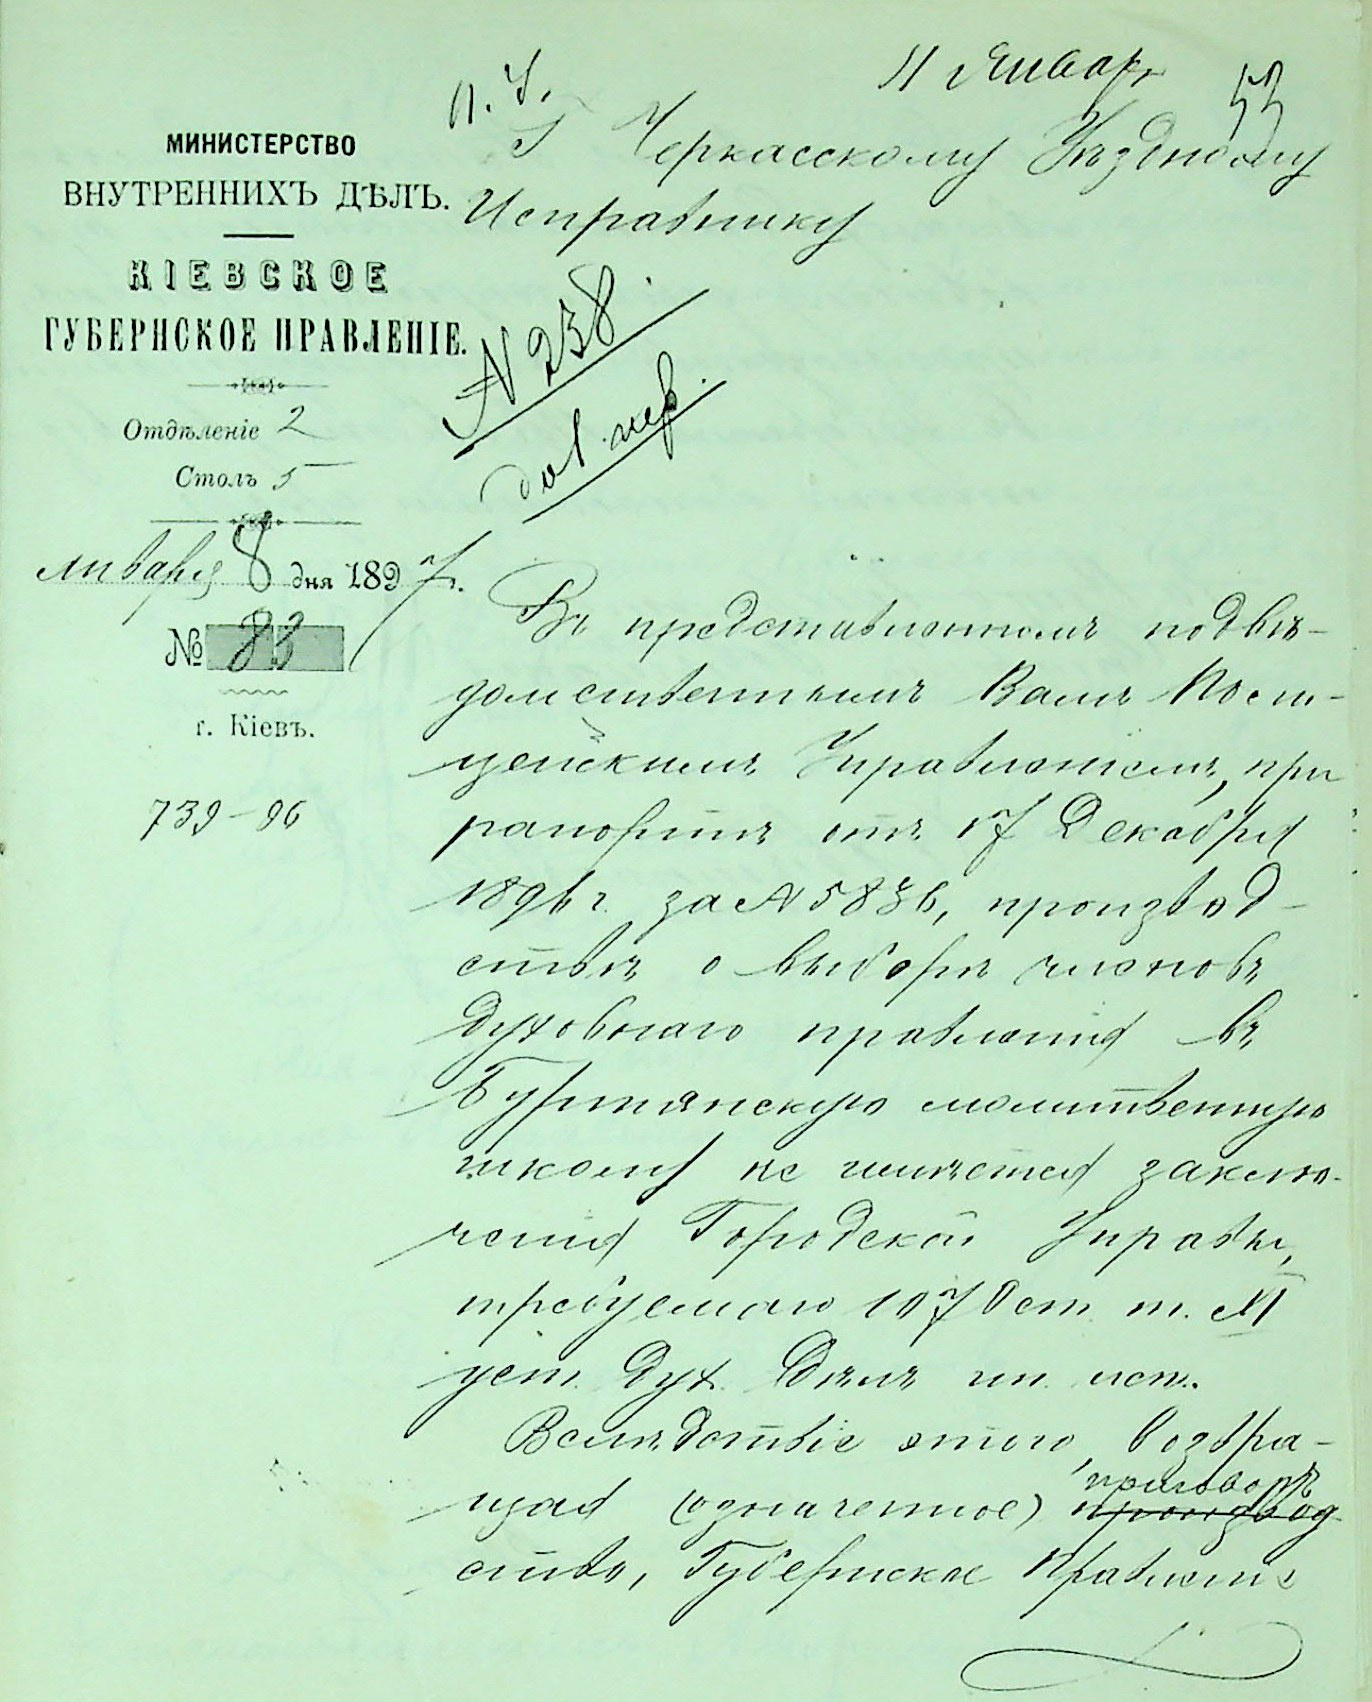 11 Январ
п. У.
53
МИНИСТЕРСТВО
ВНУТРЕННИХЪ ДѢЛЪ.
КІЕВСКОЕ
ГУБЕРНСКОЕ ПРАВЛЕНІЕ.
Отдѣленіе 2
Столъ 5
января 8 дня 1897 г.
№ 83
г. Кіевъ.
739-96
Г Черкасскому Уѣздному
Исправнику
N 238
Въ представленномъ подвѣ-
домственнымъ Вамъ Поли-
цейскимъ Управленіемъ, при
рапортѣ отъ 17 Декабря
1896 г. за N 5836, производ-
ствѣ о выборѣ членовъ
духовнаго правленія въ
Буртянскую молитвенную
школу не имѣется заклю-
ченія Городской Управы,
требуемаго 1070 ст. т. XI
уст. Дух. Дѣлъ ин. исп.
Вслѣдствіе этого, возвра-
щая (означенное) производ-
приговоръ
ство, Губернское Правленіе